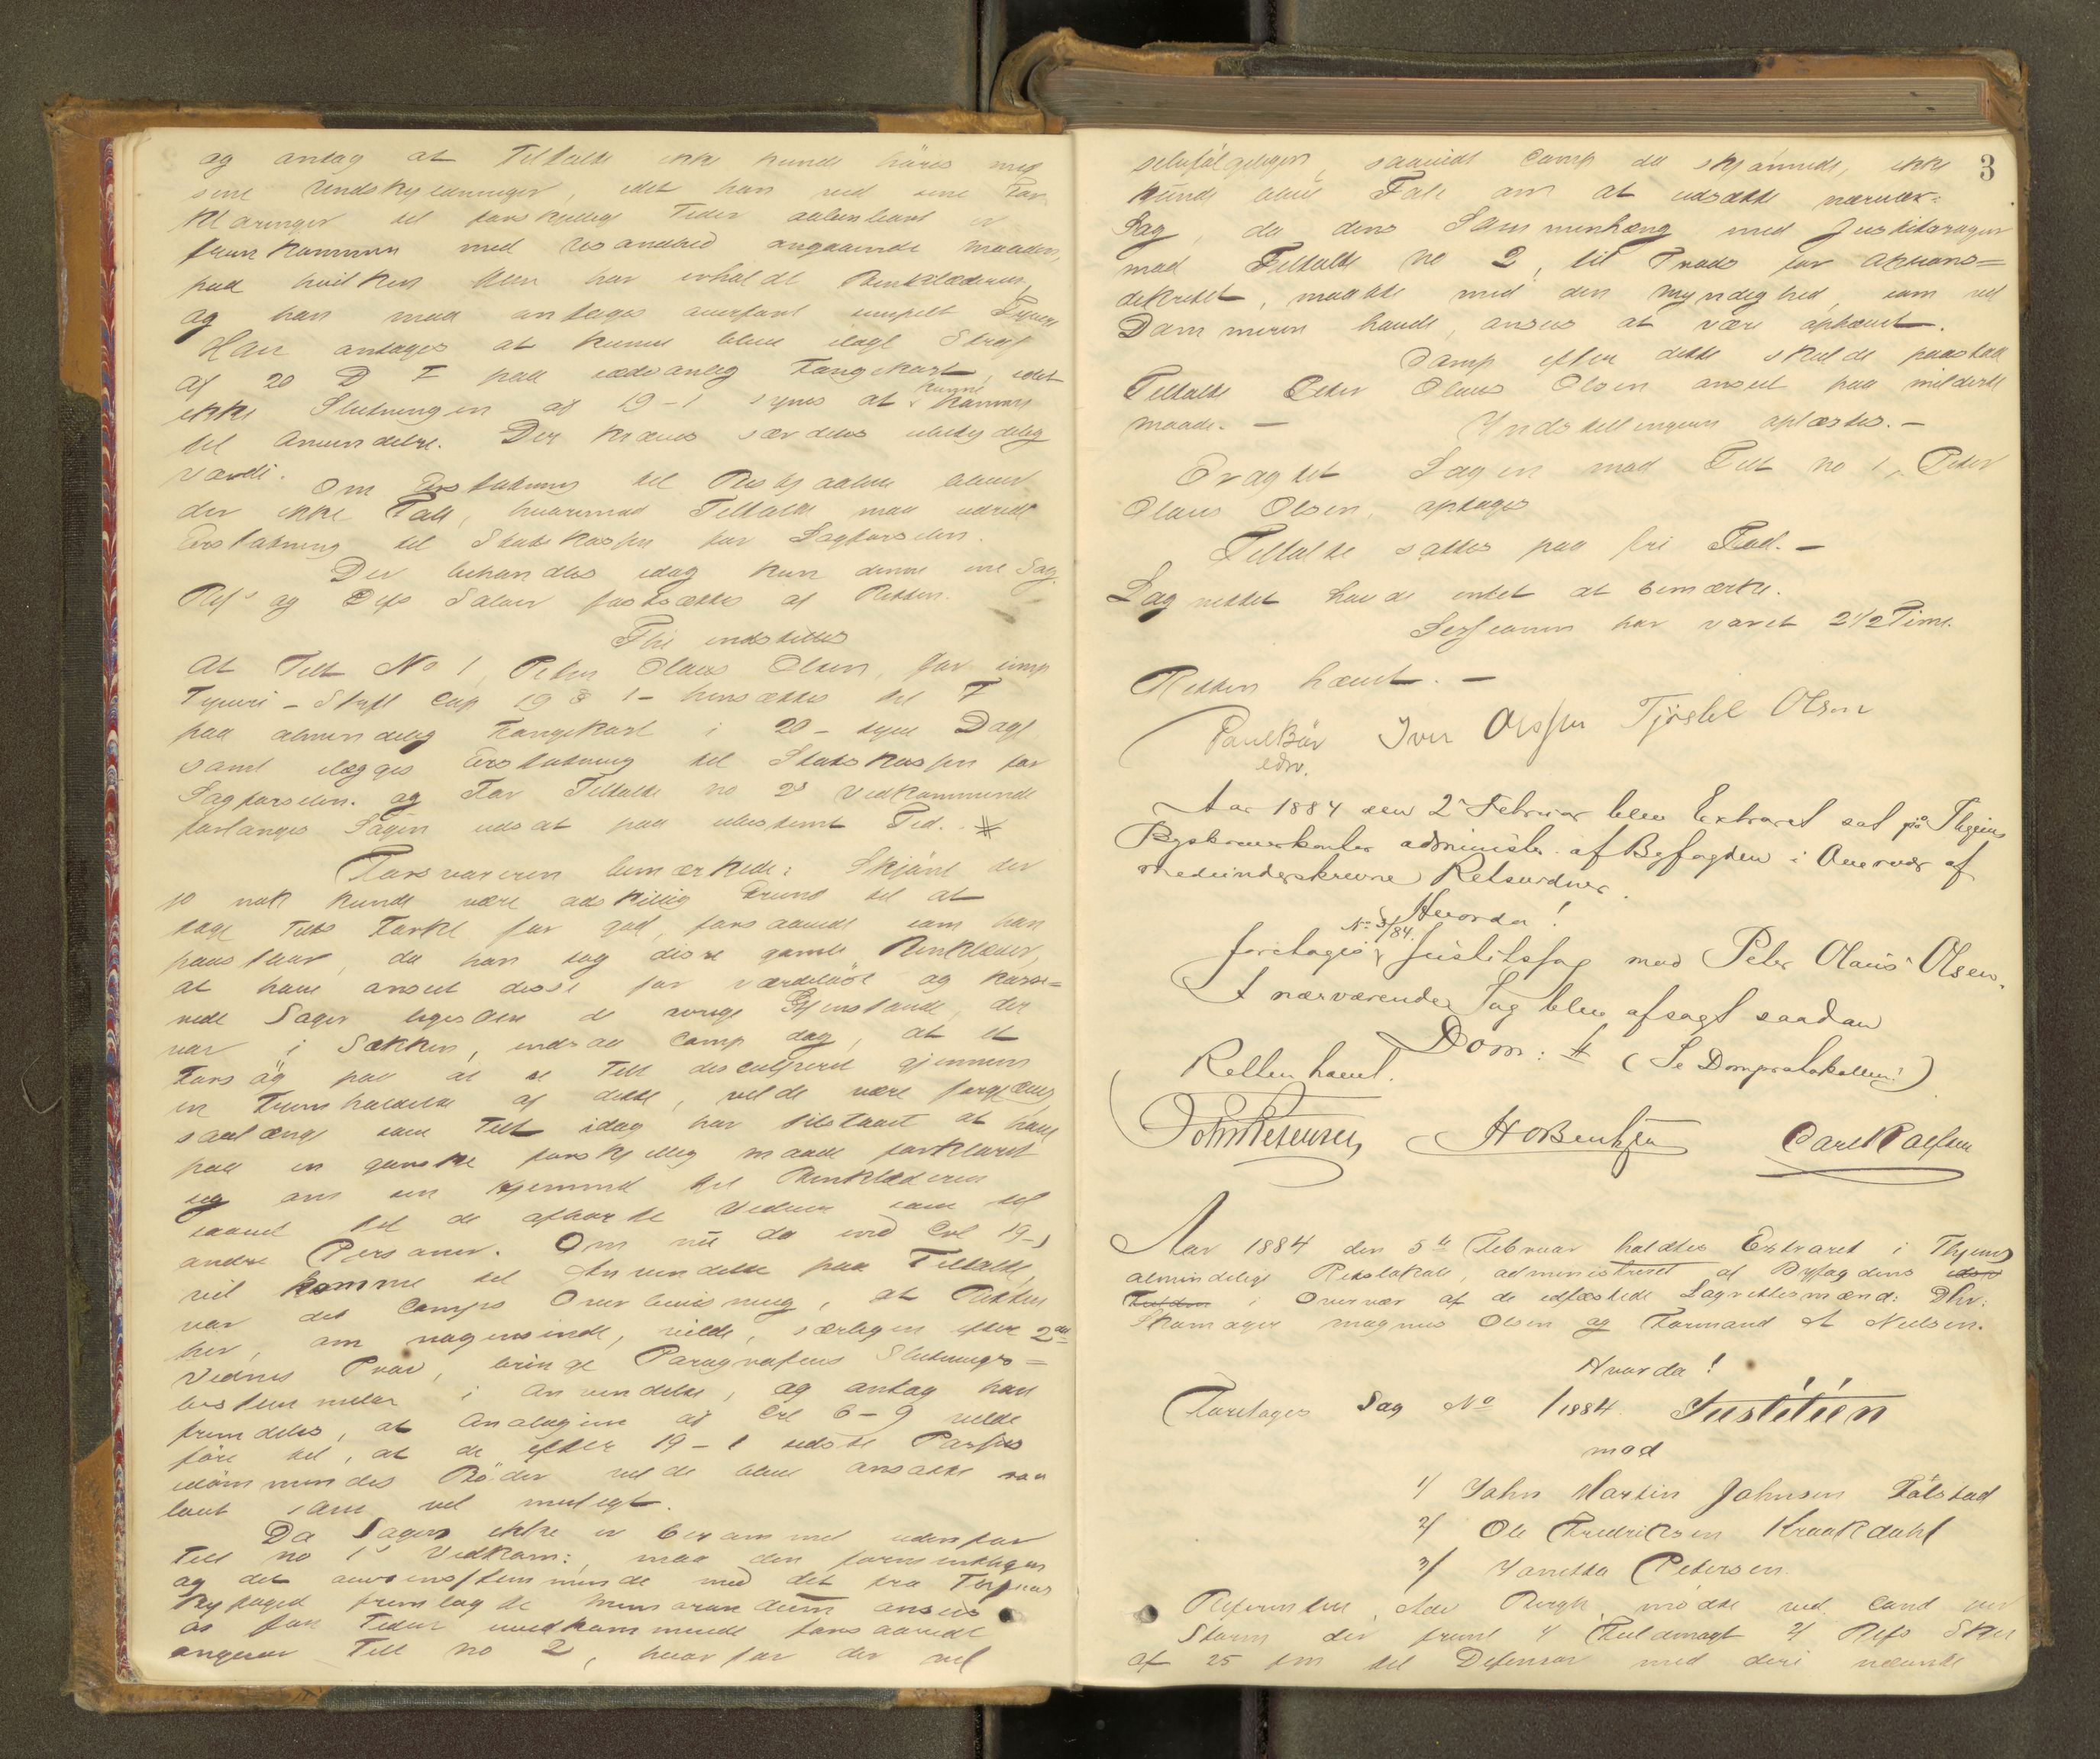 og antog at Tiltalte ikke kunde høres med
sine Undskyldninger, idet han ved sine For-
klaringer til forskjellige Tider aabenbart er
fremkommen med Usandhed angaaende Maaden,
paa hvilken han har erholdt Benklæderne,
og han maa antages at have
Han antages at kunne blive ilagt Straf
af 20 D F paa sædvanlig Fangekost, idet
ikke Slutningen af 19-1 synes at kunne komme
til Anvendelse. Der kræves særdeles ubetydelig
Værdi. Om Erstatning til bliver
der ikke Tale, hvorimod Tiltalte maa udrede
Erstatning til Statskassen for Sagførselen.
Der behandles idag kun denne ene Sag.
Refs og Defs Salær fastsættes af Retten.
Thi indstilles
At Tilt No 1, Peter Olaus Olsen, for simp
Tyveri - Strfl Cap 19 § 1 - hensættes til F
paa almindelig Fangekost i 20 - tyve Dage
samt ilægges Erstatning til Statskassen for
Sagførselen. og For Tiltalte no 2s Vedkommende
forlanges Sagen udsat paa ubestemt Tid.
Forsvareren bemærkede: Skjønt der
jo nok kunde være adskillig Grund til at
tage Tilts Forkl for god, forsaavidt som han
paastaar, da han tog disse gamle Benklæder,
at have anseet disse for værdiløse og kasse=
rede Sager ligesom de øvrige Gjenstande, der
var i Sækken, indsaa Comp dog, at et
Forsøg paa at se Tilt disculperet gjennem
en Fremholdelse af dette, vilde være forgjæves
saalænge som Tilt idag har tilstaaet at have
paa en ganske forskjellig Maade forklaret
sig om sin Hjemmel til Benklæderne
saavel til de afhørte Vidner som til
andre Personer. Om nu da end Crl 19-1
vil komme til Anvendelse paa Tiltalte,
var det Comps Overbevisning, at Retten
her, om nogensinde, vilde, særligen efter 2det
Vidnes Prov, bringe Paragrafens Slutnings=
bestemmelse i Anvendelse, og antog han
fremdeles, at Analogien af Crl 6-9 vilde
føre til, at de efter 19-1 sidste Passus
idømmendes Bøder vilde blive ansatte saa
lavt som vel muligt.
Da Sagen ikke er berammet udenfor
Tilt no 1s Vedkom:, maa den
og det med det fra
fremlagte Memorandum ansees
forsaavidt
angaar Tilt no 2, hvorfor der vel
3
selvfølgeligen, saavidt Comp da skjønnede, ikke
kunde blive Tale om at udsætte nærvær=
Sag, da dens Sammenhæng med Justitssagen
mod Tiltalte no 2, til Trods for Aktions=
dekretet, maatte med den Myndighed, som vel
Dommeren havde, ansees at være ophævet.
Comp efter dette skulde paastaa
Tiltalte Peter Olaus Olsen anseet paa mildeste
Maade. — Indstillingen oplæstes. —
Eragtet Sagen mod Tilt no 1, Peter
Olaus Olsen, optages
Tiltalte sattes paa fri Fod. —
Lagrettet havde intet at bemærke.
Sessionen har varet 2 1/2 Time.
Retten hævet. —
Paul Bür Iver Olsen Tjøstel Olsen
edsv.
Aar 1884 den 2 Februar blev Extraret sat på Thgiens
Byskriverkontor administr. af Byfogden i Overvær af
medunderskrevne Retsvidner.
Hvorda!
No 3/84.
foretages Justitssag mod Peter Olaus Olsen.
I nærværende Sag blev afsagt saadan
Dom: # (Se Domprotokollen)
Retten hævet.
John Petersen H O Bentzen Carl Paulsen
Aar 1884 den 5te Februar holdtes Extraret i Thjems
almindelige Retslokale, administreret af Byfogdens edsv
i Overvær af de edfæstede Lagrettesmænd: Dhr:
Skomager Magnus Olsen og Formand A Nielsen.
Hvorda!
Foretages Sag No 1/1884 Justitien
mod
1/ John Martin Johnsen Fålstad
2/ Ole Fredriksen Kraakdahl
3/ Janetta Petersen.
Referenten, Adv Bergh, mødte ved Cand
Storm der freml 1/ Fuldmagt 2/ Refs Skr
af 25 fm til Defensor med deri nævnte